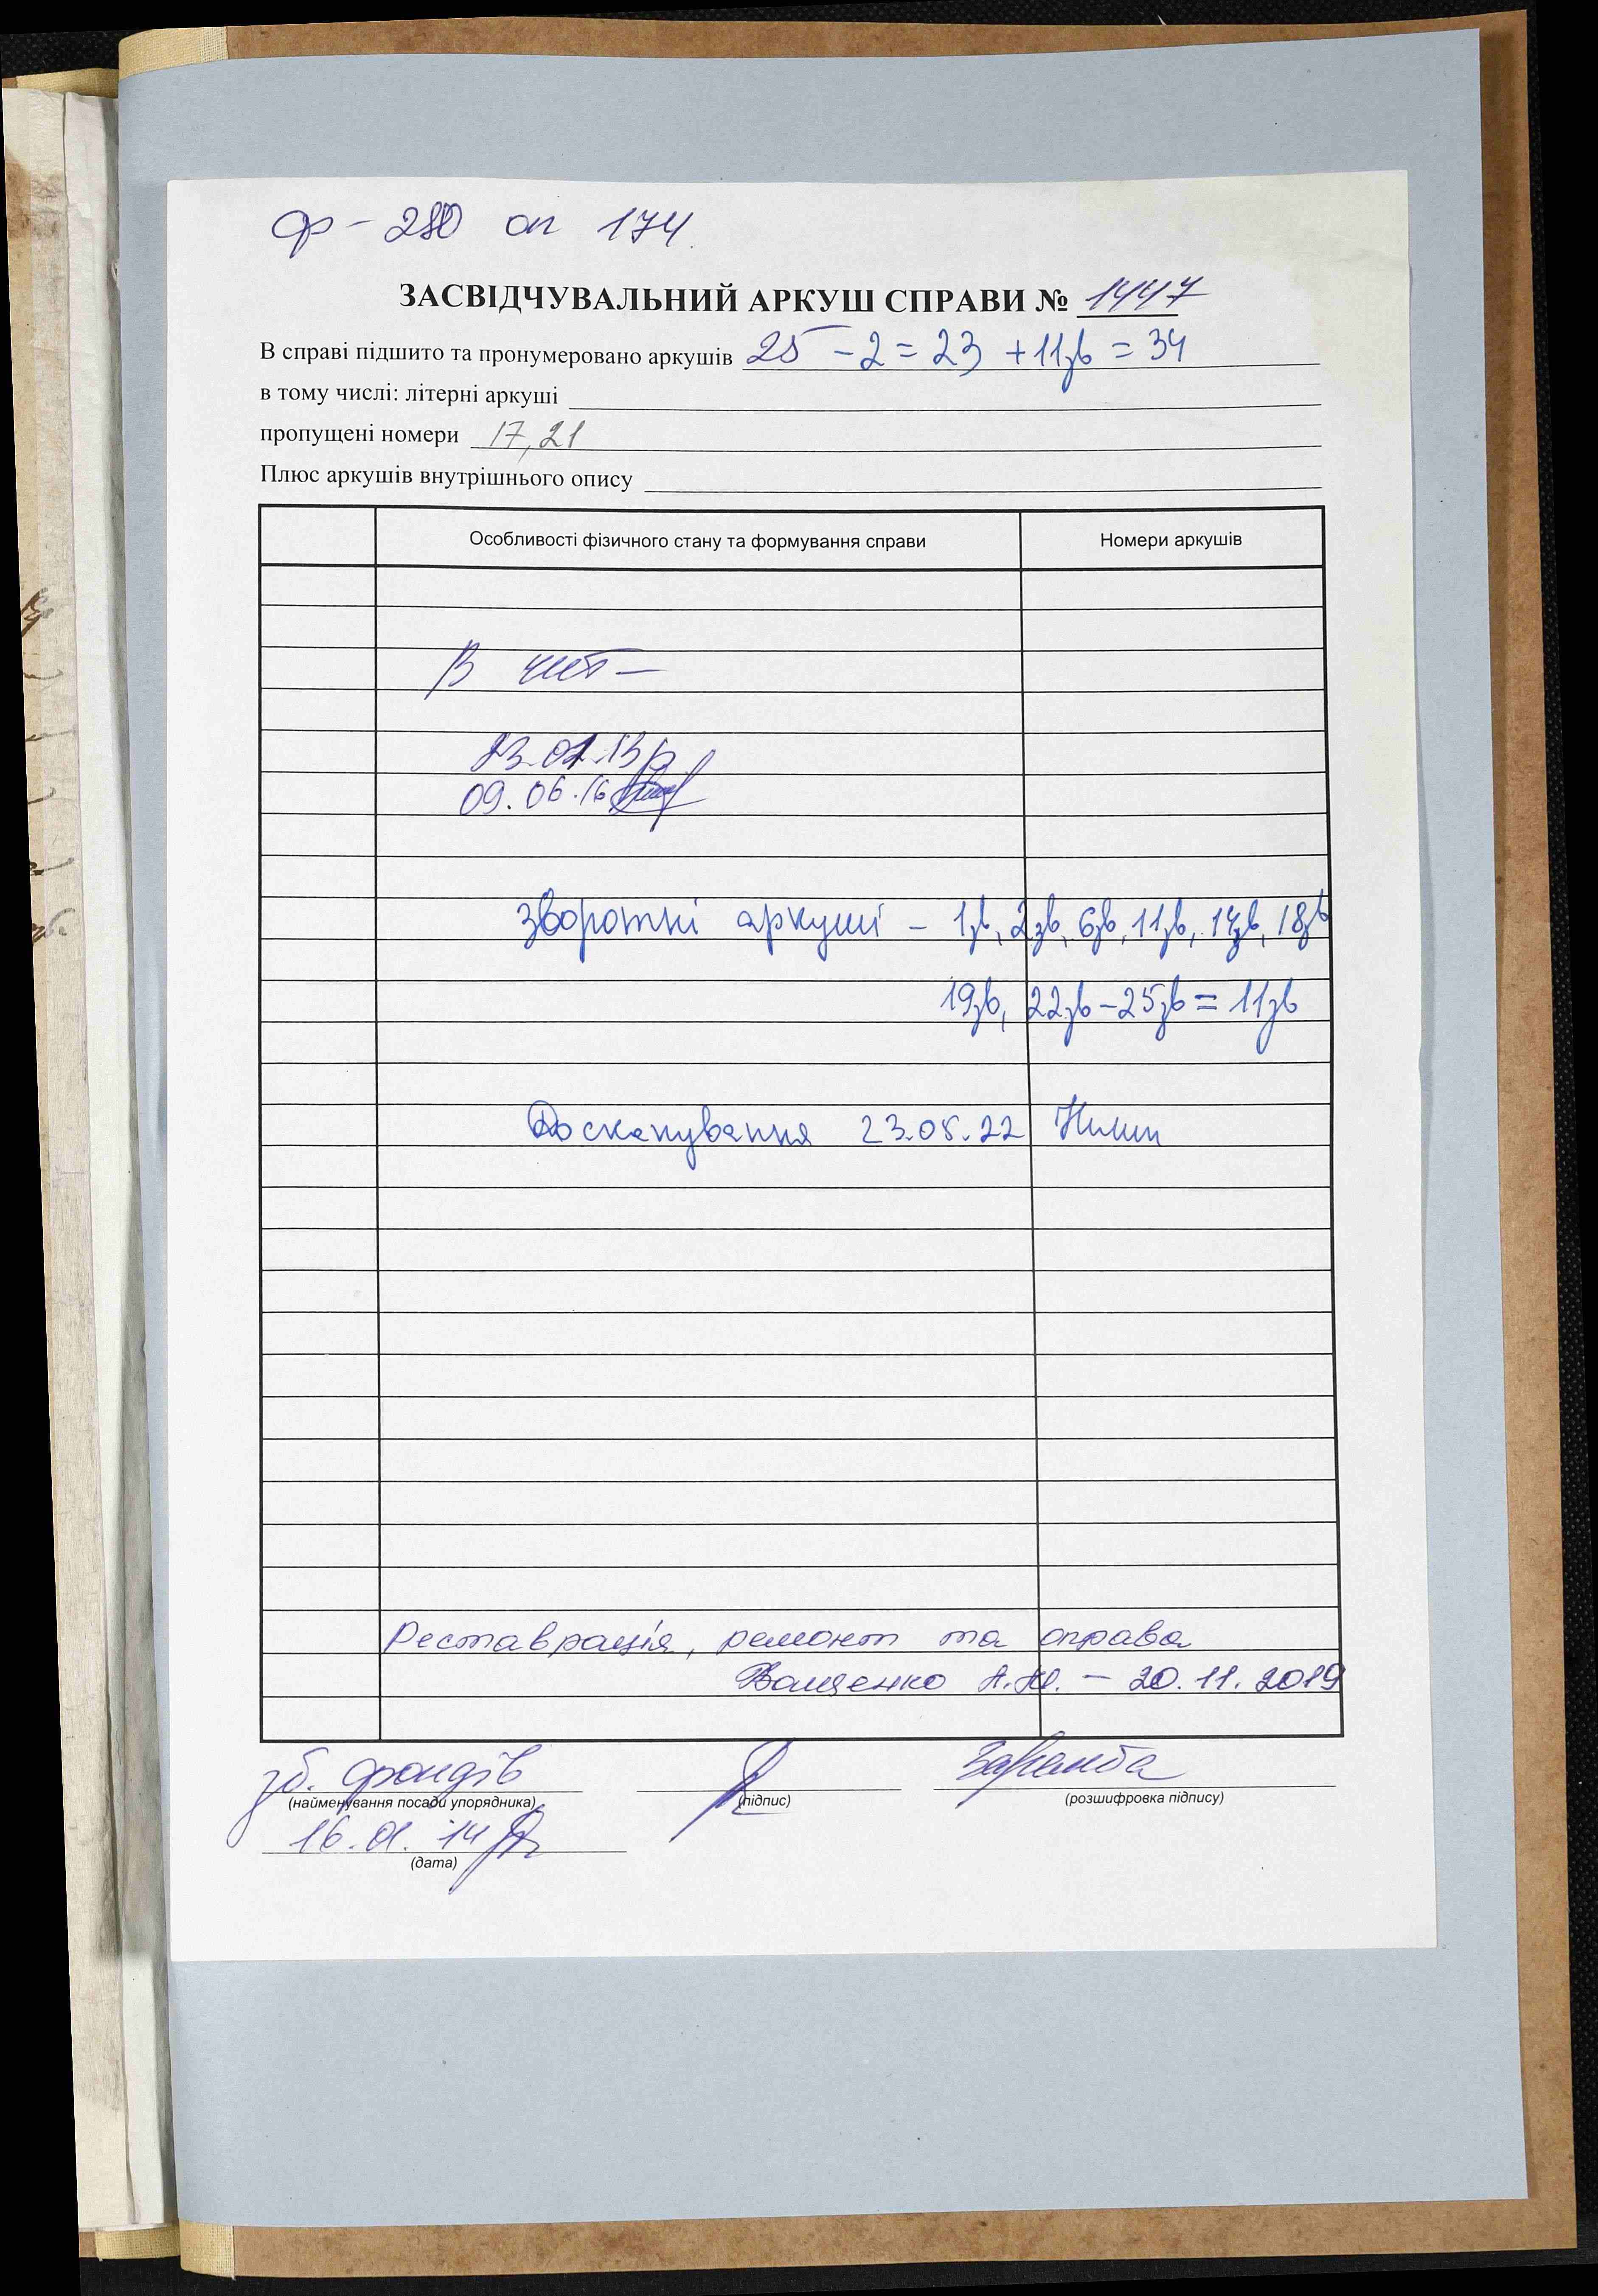 ф-280 оп 174
ЗАСВІДЧУВАЛЬНИЙ АРКУШ СПРАВИ № 1447
В справі підшито та пронумеровано аркушів 25 - 2 = 23 + 11зв = 34
в тому числі: літерні аркуші
пропущені номери 17, 21
Плюс аркушів внутрішнього опису
Особливості фізичного стану та формування справи Номери аркушів
В
09.06.16
Зворотні аркуші - 1зв, 2зв, 6зв, 11зв, 14зв, 18зв
19зв, 22зв - 25зв = 11зв
До сканування 23.05.22
Реставрація, ремонт та оправа
Ващенко А.Ю. - 20.11.2019
зб. фондів
(найменування посади упорядника) (підпис) (розшифровка підпису)
16.01.14
(дата)